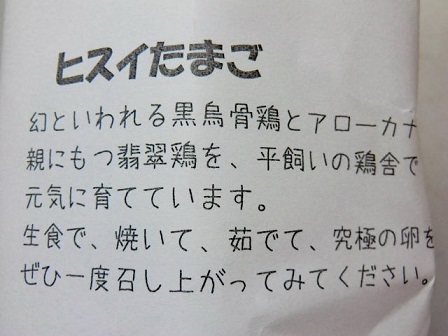 ヒスイたまご
幻といわれる黒烏骨鶏とアローカナ
親にもつ翡翠鶏を、平飼いの鶏舎で
元気に育てています。
生食で、焼いて、茹でて、究極の卵を
ぜひ一度召し上がってみてください。